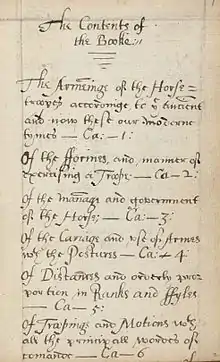 The Contents of
the Booke:
The Armeinge of the Horse=
troopes accordinge to ye Ancient
and now these our moderne
tymes — Ca: — 1:
Of the fformes, and, maner of
exercising a Troope — Ca — 2:
Of the manage and government
of the Horse; — Ca: — 3:
Of the Cariage and use of Armes
wth the Postures — Ca: — 4
Of Distances and orderly pro=
portion in Ranks and ffyles
Ca — 5:
Of Troopings and Motions wth
all the principall wordes of
comande — Ca — 6